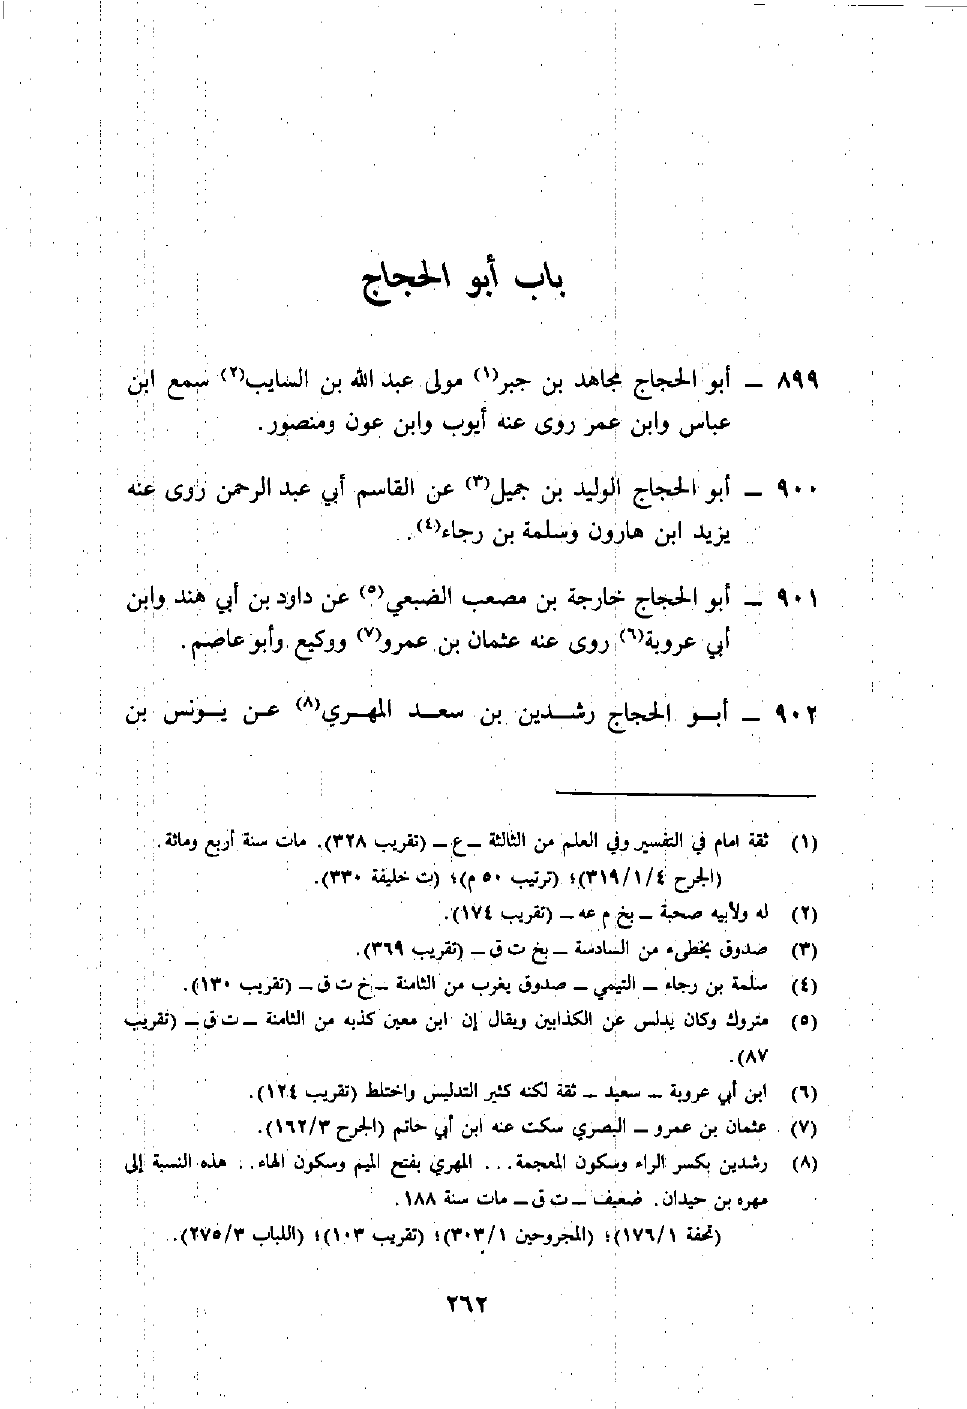 باب أبو الحجاج
٨٩٩ ـ أبو الحجاج مجاهد بن جبر(١) مولى عبد الله بن السايب(٢) سمع ابن
عباس وابن عمر روى عنه أيوب وابن عون ومنصور.
٩٠٠ ـ أبو الحجاج الوليد بن جميل(٣) عن القاسم أبي عبد الرحمن روى عنه
يزيد ابن هارون وسلمة بن رجاء(٤).
٩٠١ ـ أبو الحجاج خارجة بن مصعب الضبعي(٥) عن داود بن أبي هند وابن
أبي عروبة(٦) روى عنه عثمان بن عمرو(٧) ووكيع وأبو عاصم.
٩٠٢ ـ أبـو الحجاج رشـدين بن سعـد المهـري(٨) عـن يـونس بن
(١) ثقة امام في التفسير وفي العلم من الثالثة ـ ع ـ (تقريب ٣٢٨). مات سنة أربع ومائة.
(الجرح ٣١٩/١/٤)؛ (ترتيب ٥٠ م)؛ (ت خليفة ٣٣٠).
(٢) له ولأبيه صحبة ـ بخ م عه ـ (تقريب ١٧٤).
(٣) صدوق يخطىء من السادسة ـ بخ ت ق ـ (تقريب ٣٦٩).
(٤) سلمة بن رجاء ـ التيمي ـ صدوق يغرب من الثامنة ـ خ ت ق ـ (تقريب ١٣٠).
(٥) متروك وكان يدلس عن الكذابين ويقال إن ابن معين كذبه من الثامنة ـ ت ق ـ (تقريب
٨٧).
(٦) ابن أبي عروبة ـ سعيد ـ ثقة لكنه كثير التدليس واختلط (تقريب ١٢٤).
(٧) عثمان بن عمرو ـ البصري سكت عنه ابن أبي حاتم (الجرح ١٦٢/٣).
(٨) رشدين بكسر الراء وسكون المعجمة... المهري بفتح الميم وسكون الهاء.. هذه النسبة إلى
مهره بن حيدان. ضعيف ـ ت ق ـ مات سنة ١٨٨.
(تحفة ١٧٦/١)؛ (المجروحين ٣٠٣/١)؛ (تقريب ١٠٣)؛ (اللباب ٢٧٥/٣).
٢٦٢